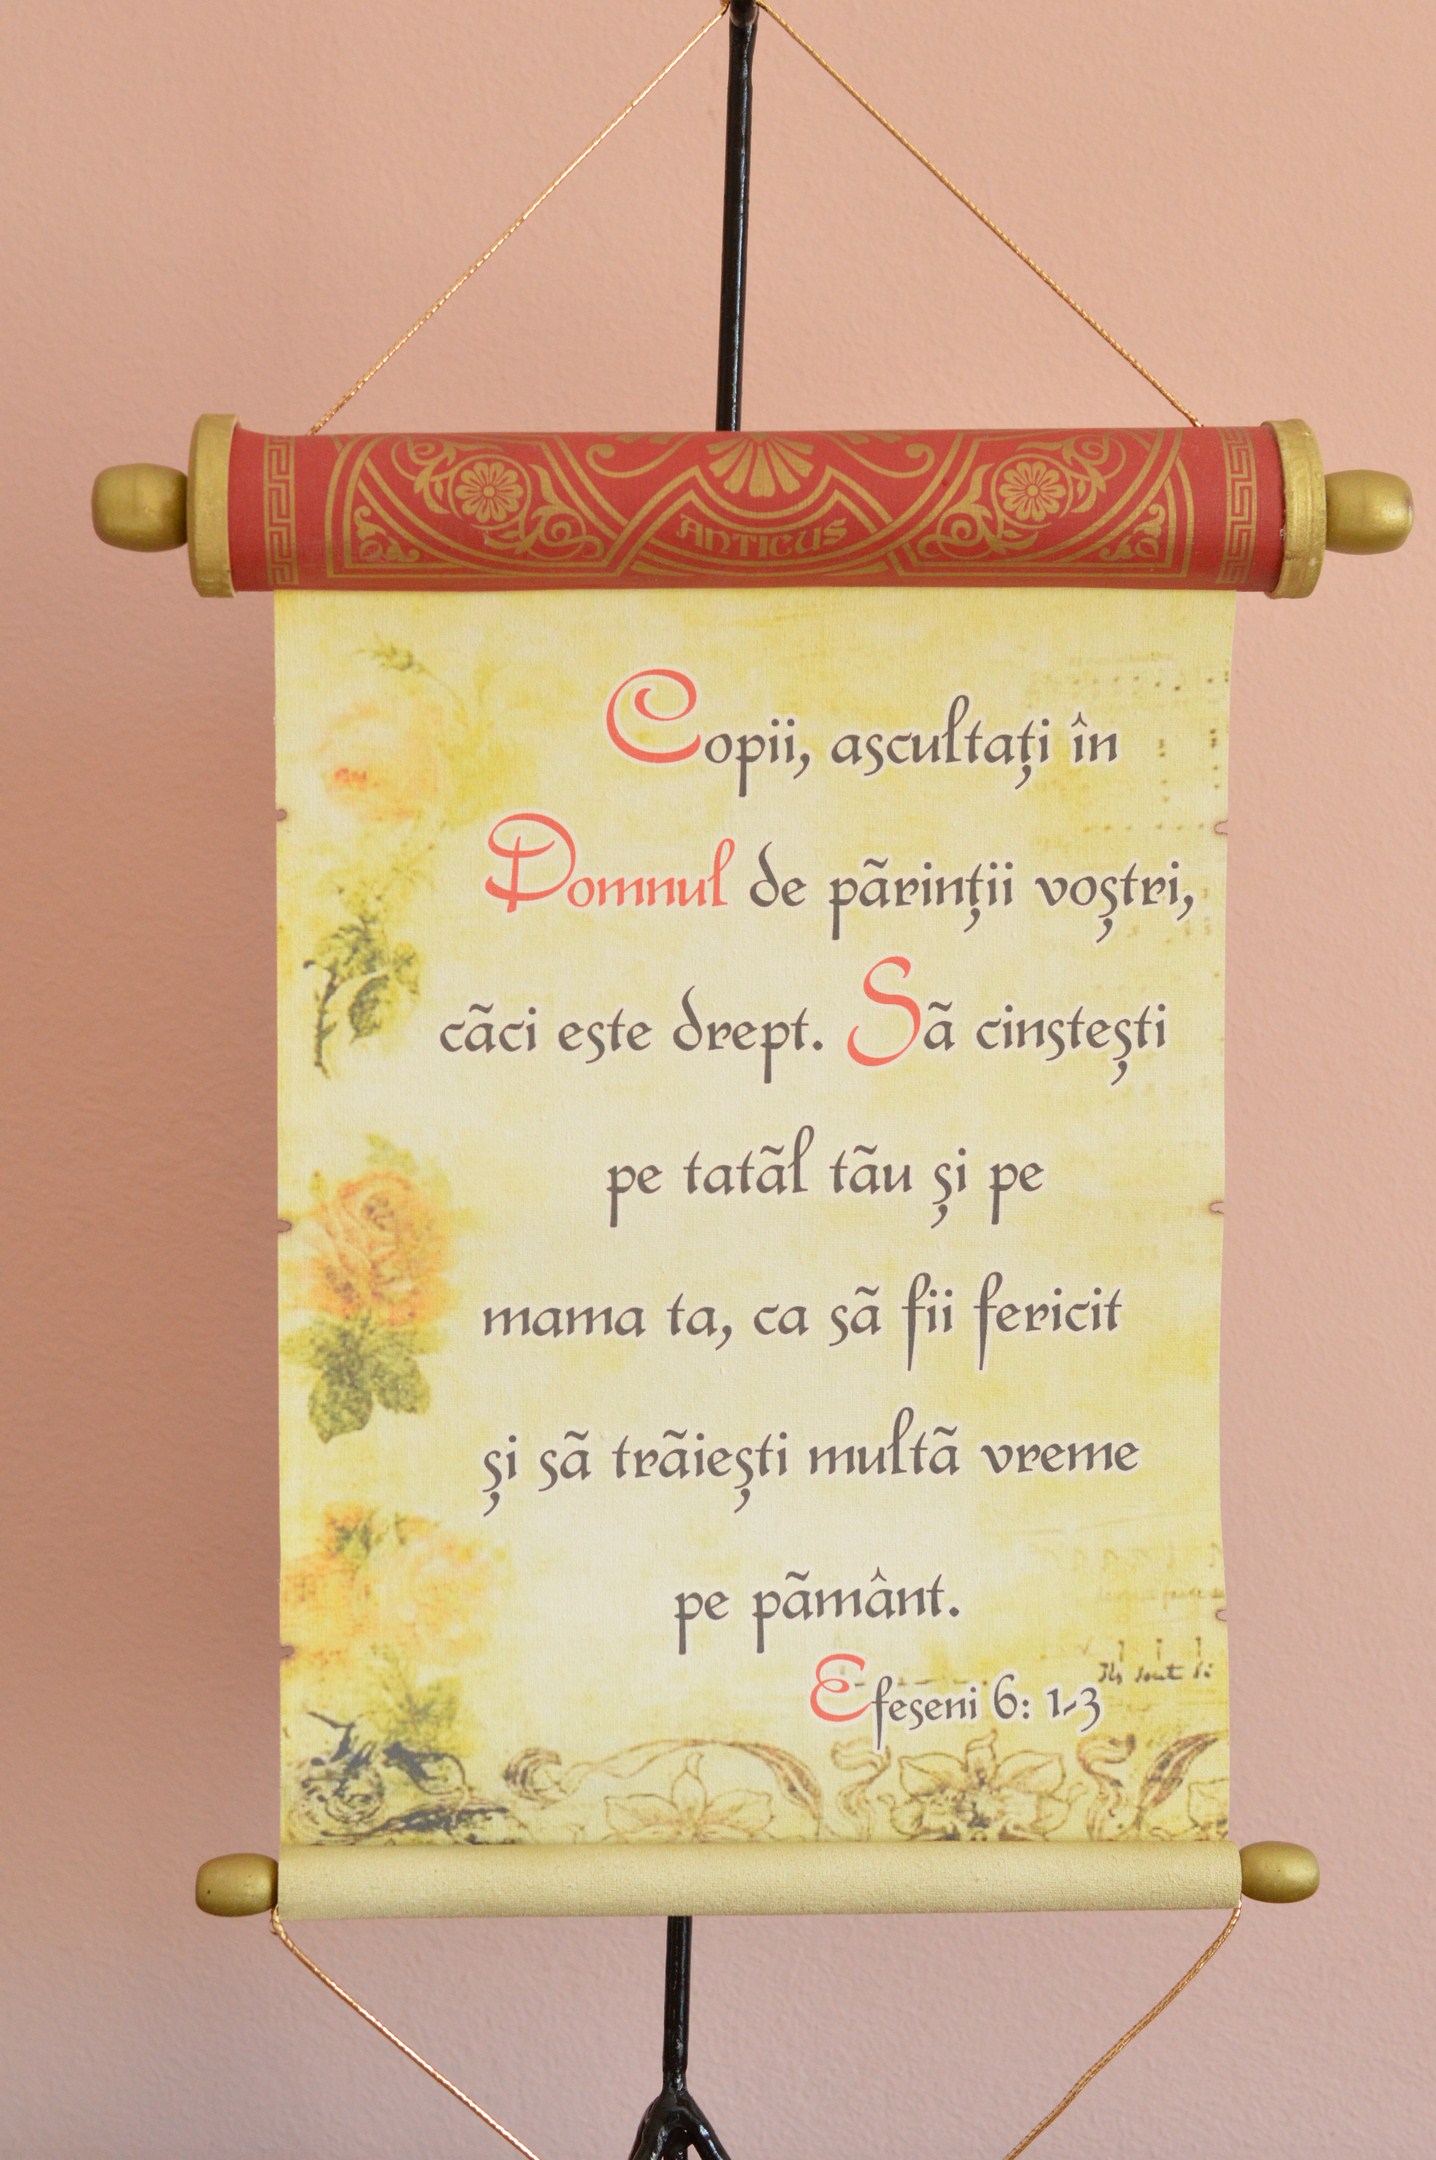 ANTICUS
Copii, ascultați în
Domnul de părinții voștri,
căci este drept. Să cinstești
pe tatăl tău și pe
mama ta, ca să fii fericit
și să trăiești multă vreme
pe pământ.
Ils sont si
Efeseni 6: 1-3